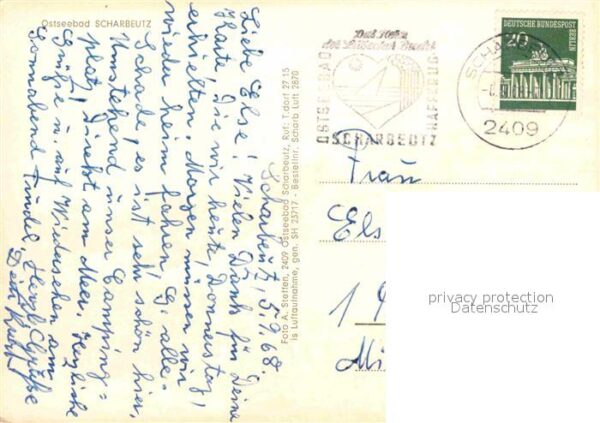 Ostseebad SCHARBEUTZ
Scharbeutz, 5.9.68.
Liebe Else! Vielen Dank für Deine
Karte, Die wir heute, Donnerstag,
erhielten. Morgen müssen wir
wieder heim fahren, G. alle.
Schade, es ist sehr schön hier,
Umstehend unser Camping=
platz! Direkt am Meer. Herzliche
Grüße u. auf Wiedersehen am
Sonnabend Trudel, Herzl. Grüße
Dein Kurt
Foto A. Steffen, 2409 Ostseebad Scharbeutz, Ruf: T.dorf 27 15
is Luftaufnahme, gen. SH 23717 - Bestellnr. Scharb Luft 2670
Das Herz
der Lübecker Bucht
OSTSEEBAD
SCHARBEUTZ
HAFFKRUG
SCHA
2409
DEUTSCHE BUNDESPOST
BERLIN
20
Frau
Els
19
Mi
privacy protection
Datenschutz